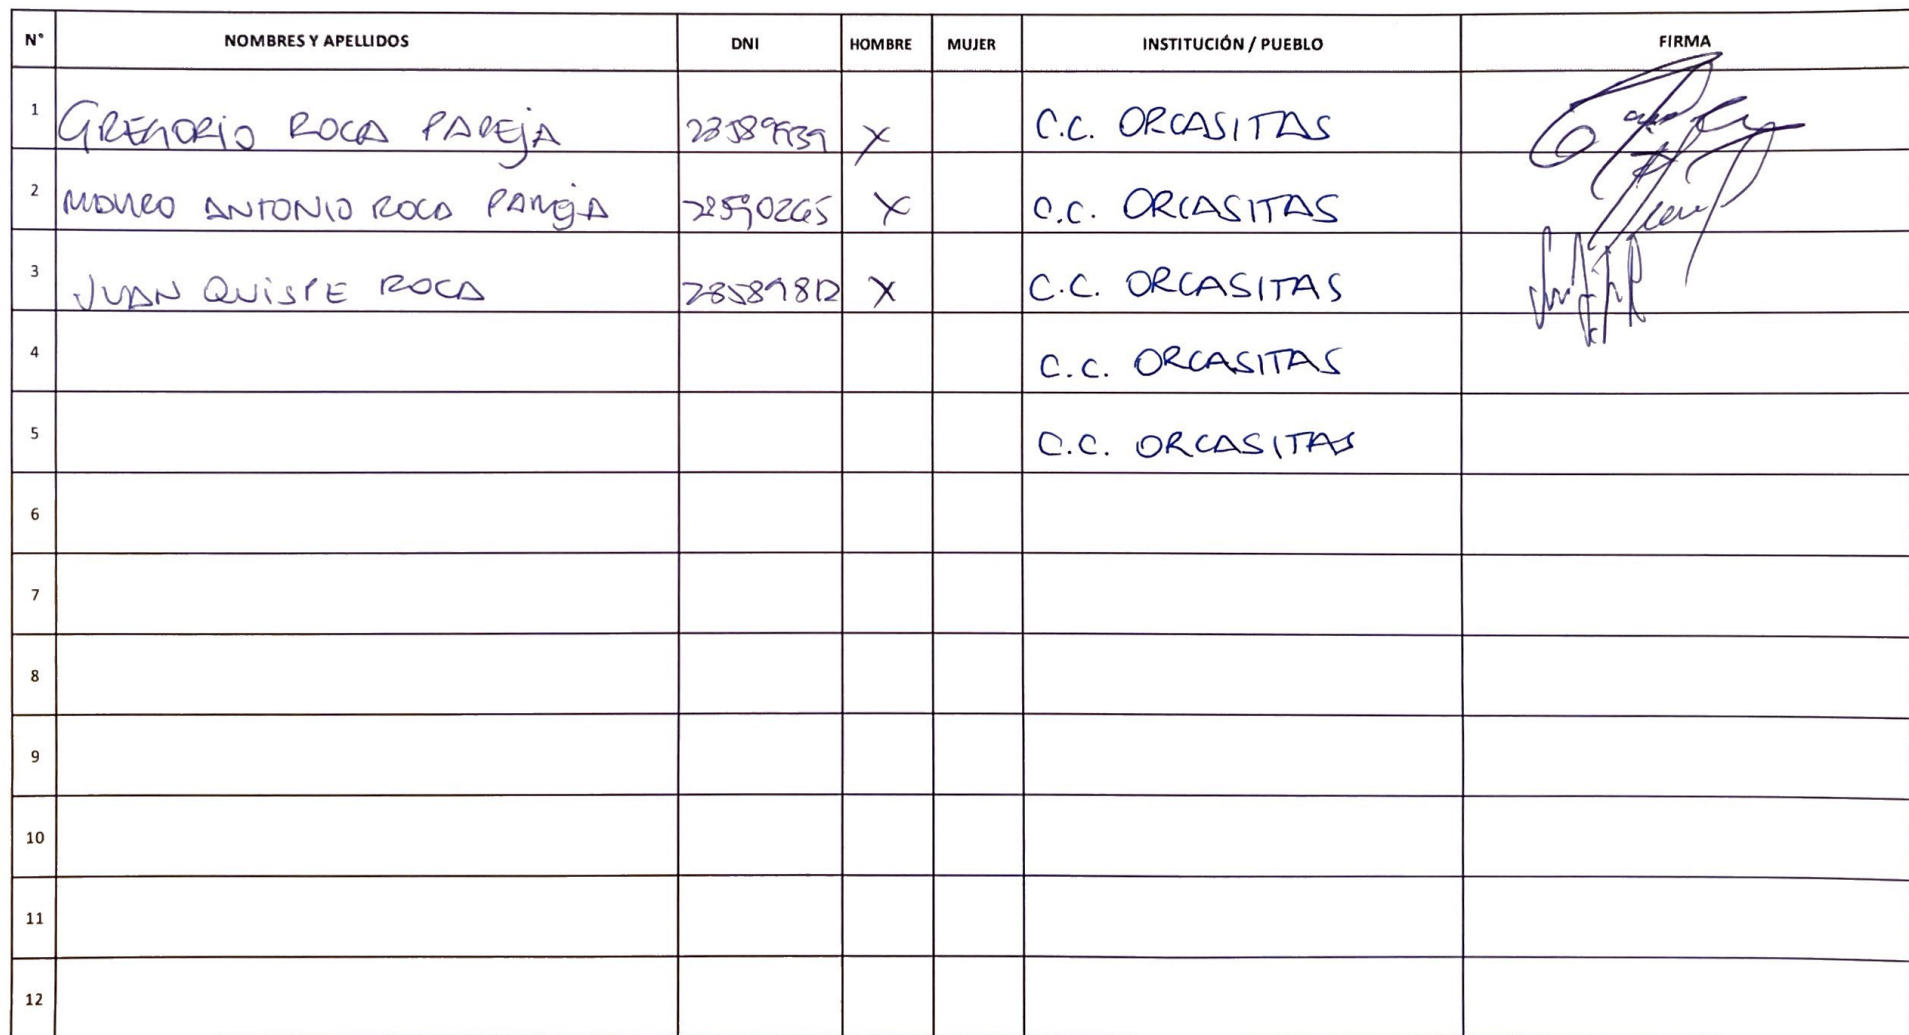 N° NOMBRES Y APELLIDOS DNI HOMBRE MUJER INSTITUCIÓN / PUEBLO FIRMA
1 GREGORIO ROCA PAREJA X C.C. ORCASITAS
2 MAURO ANTONIO ROCA PAREJA 28590265 X C.C. ORCASITAS
3 JUAN QUISPE ROCA 28589812 X C.C. ORCASITAS
4 C.C. ORCASITAS
5 C.C. ORCASITAS
6
7
8
9
10
11
12